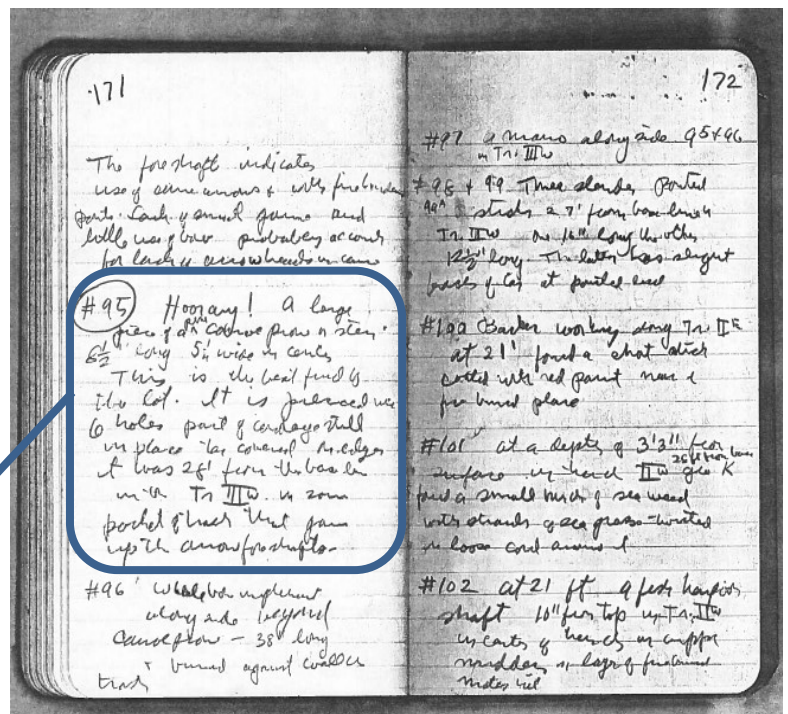 171
The foreshaft indicates
use of same arrows & with
parts. Lack of small game and
little use of bow probably accounts
for lack of arrowheads in cave
#95 Hooray! A large
piece of a canoe prow or stern
6½" long 5" wide in center
This is the best find of
the lot. It is pierced
6 holes part of cordage still
in place tar covered edges
it was 28' from the base line
in the Tr IIIW in same
pocket of trash that gave
up the arrow foreshafts.
#96 Whalebone implement
along side beyond
Canoe prow - 38" long
& buried against
trash
172
#97 a mano along side 95+96
in Tr. IIIW
#98 + 99 Three slender Pointed
99A sticks 27' from base line in
Tr. IIW one 16" long the other
12½" long. The latter has slight
traces of tar at pointed end
#100 working along Tr. IIE
at 21' found a short stick
coated with red paint near
burned place
#101 at a depth of 3'3" from
26 ft from base
surface in trench IIW K
found a small bunch of sea weed
with strands of sea grass twisted
in loose cord around it
#102 at 21 ft a fish harpoon
shaft 10" from top in Tr. IIW
in center of trench in upper
midden in layer of
material